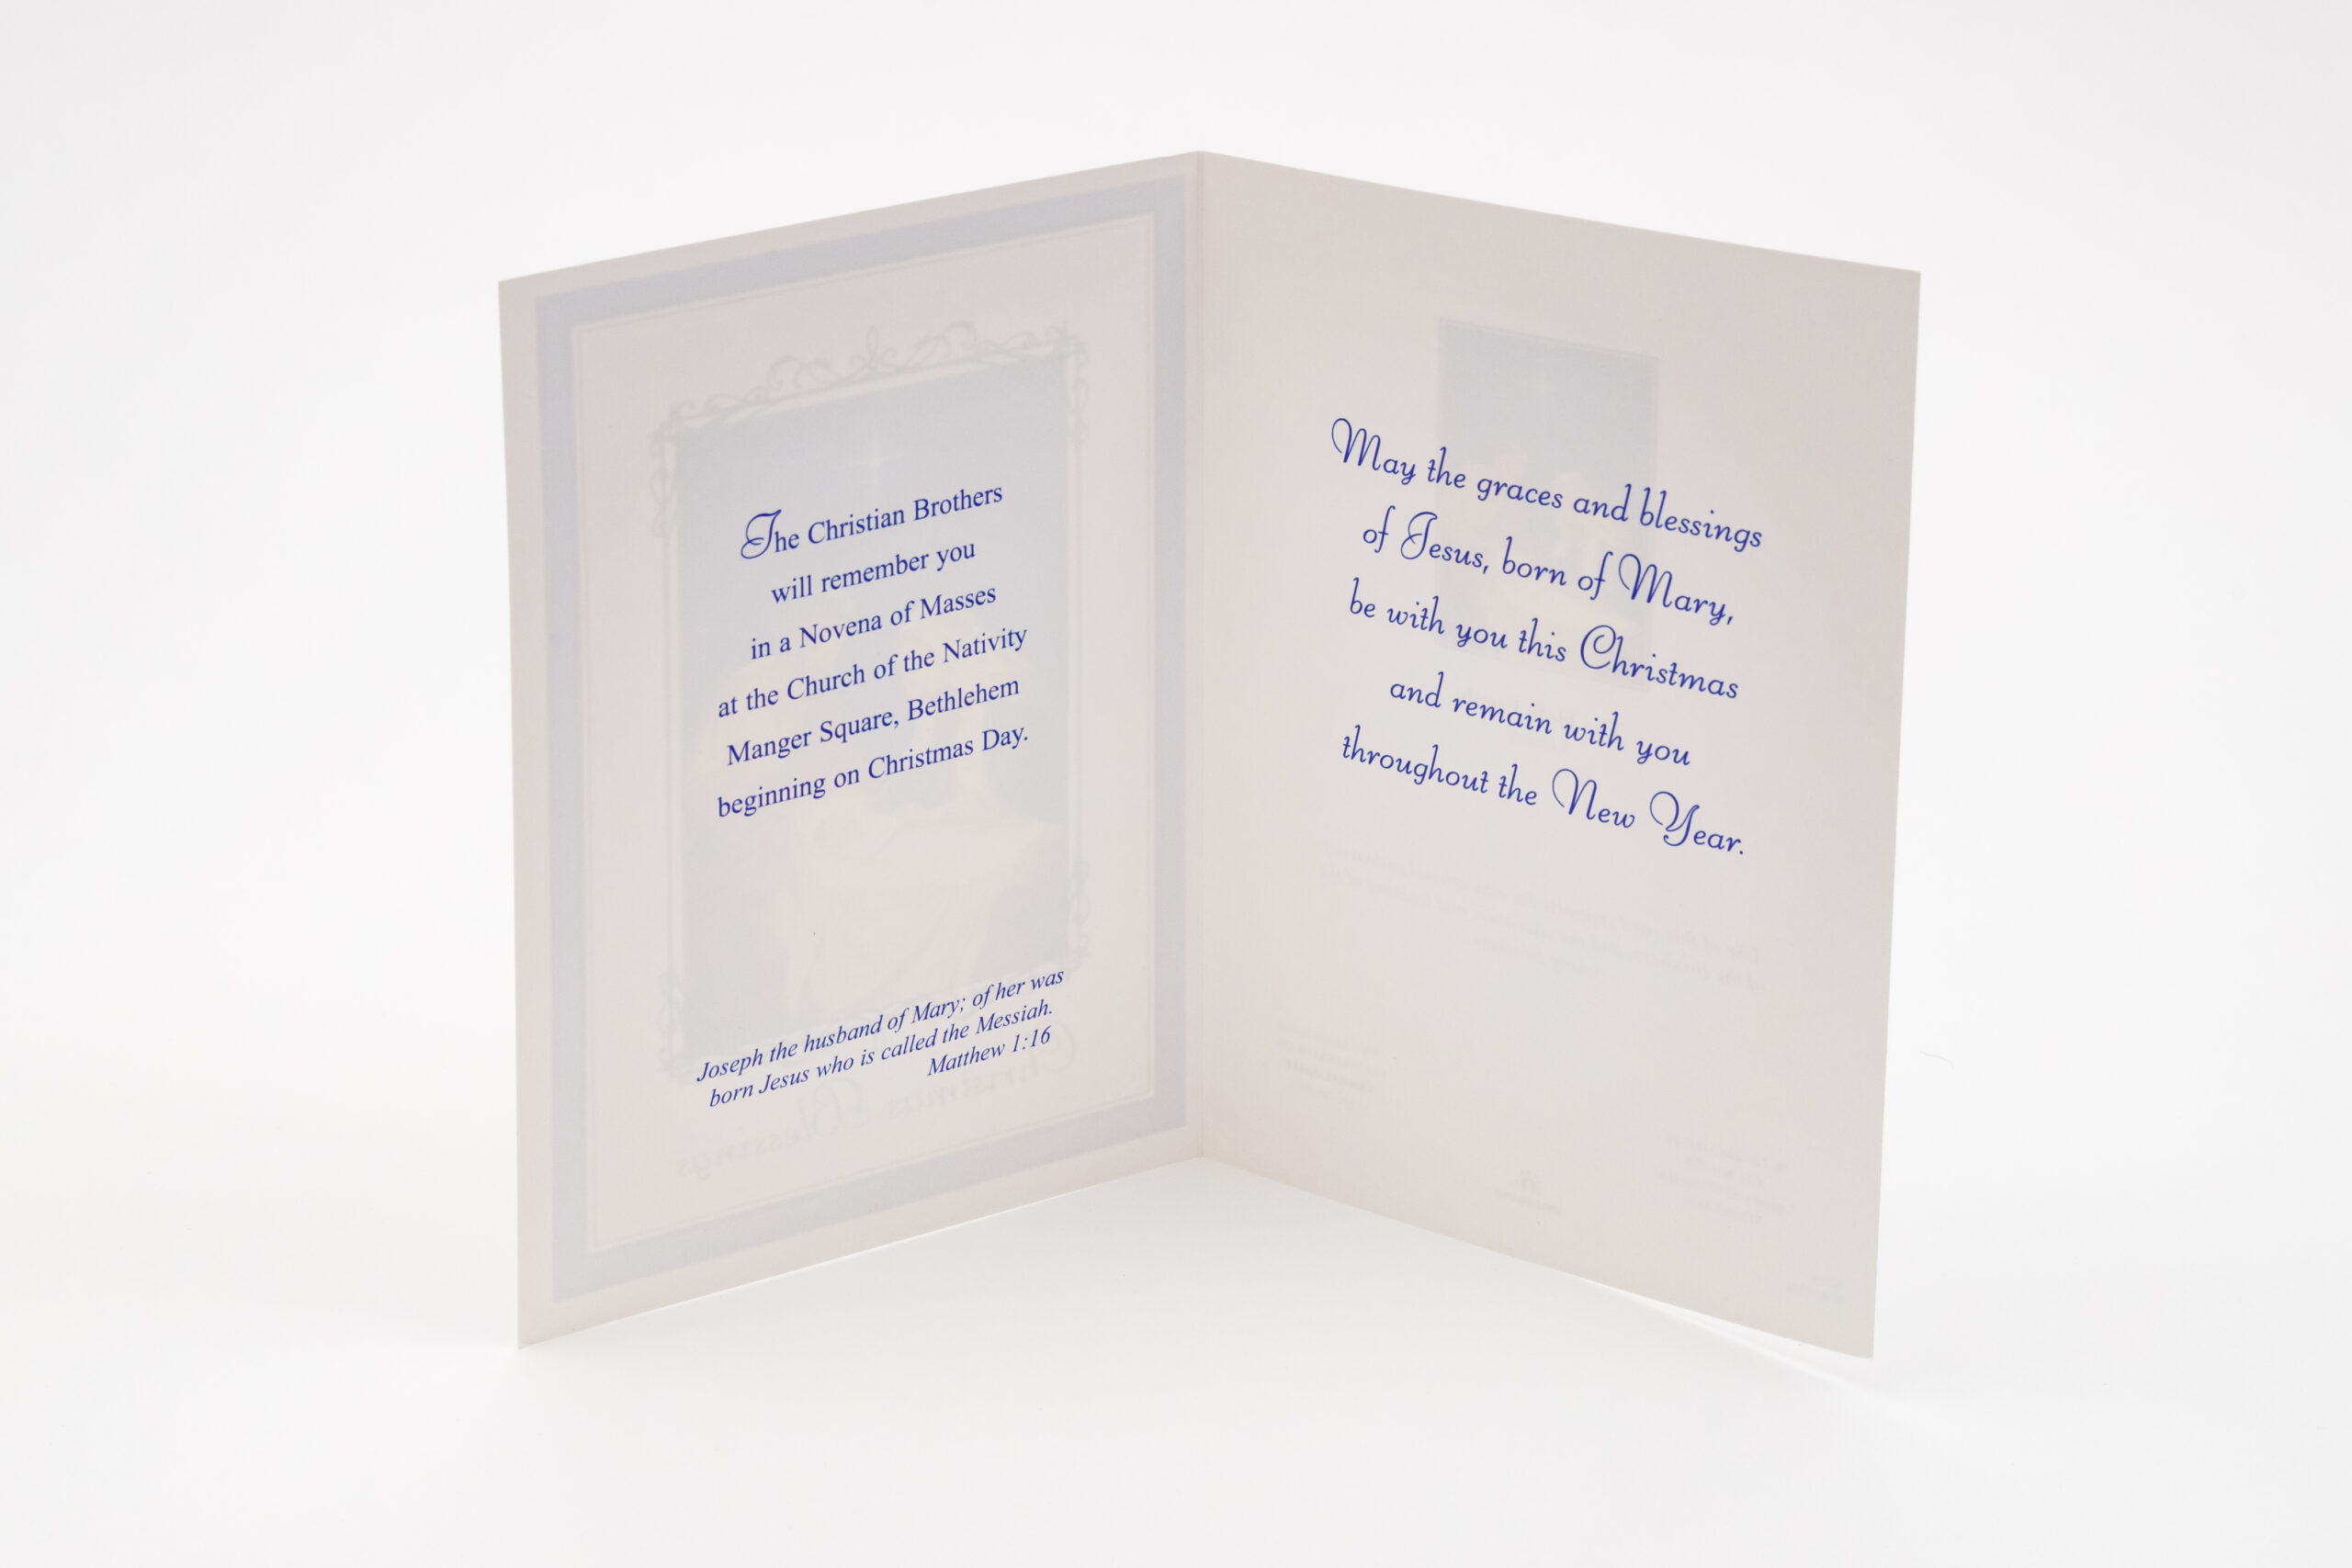 The Christian Brothers
will remember you
in a Novena of Masses
at the Church of the Nativity
Manger Square, Bethlehem
beginning on Christmas Day.
Joseph the husband of Mary; of her was
born Jesus who is called the Messiah.
Matthew 1:16
Christmas Blessings
May the graces and blessings
of Jesus, born of Mary,
be with you this Christmas
and remain with you
throughout the New Year.